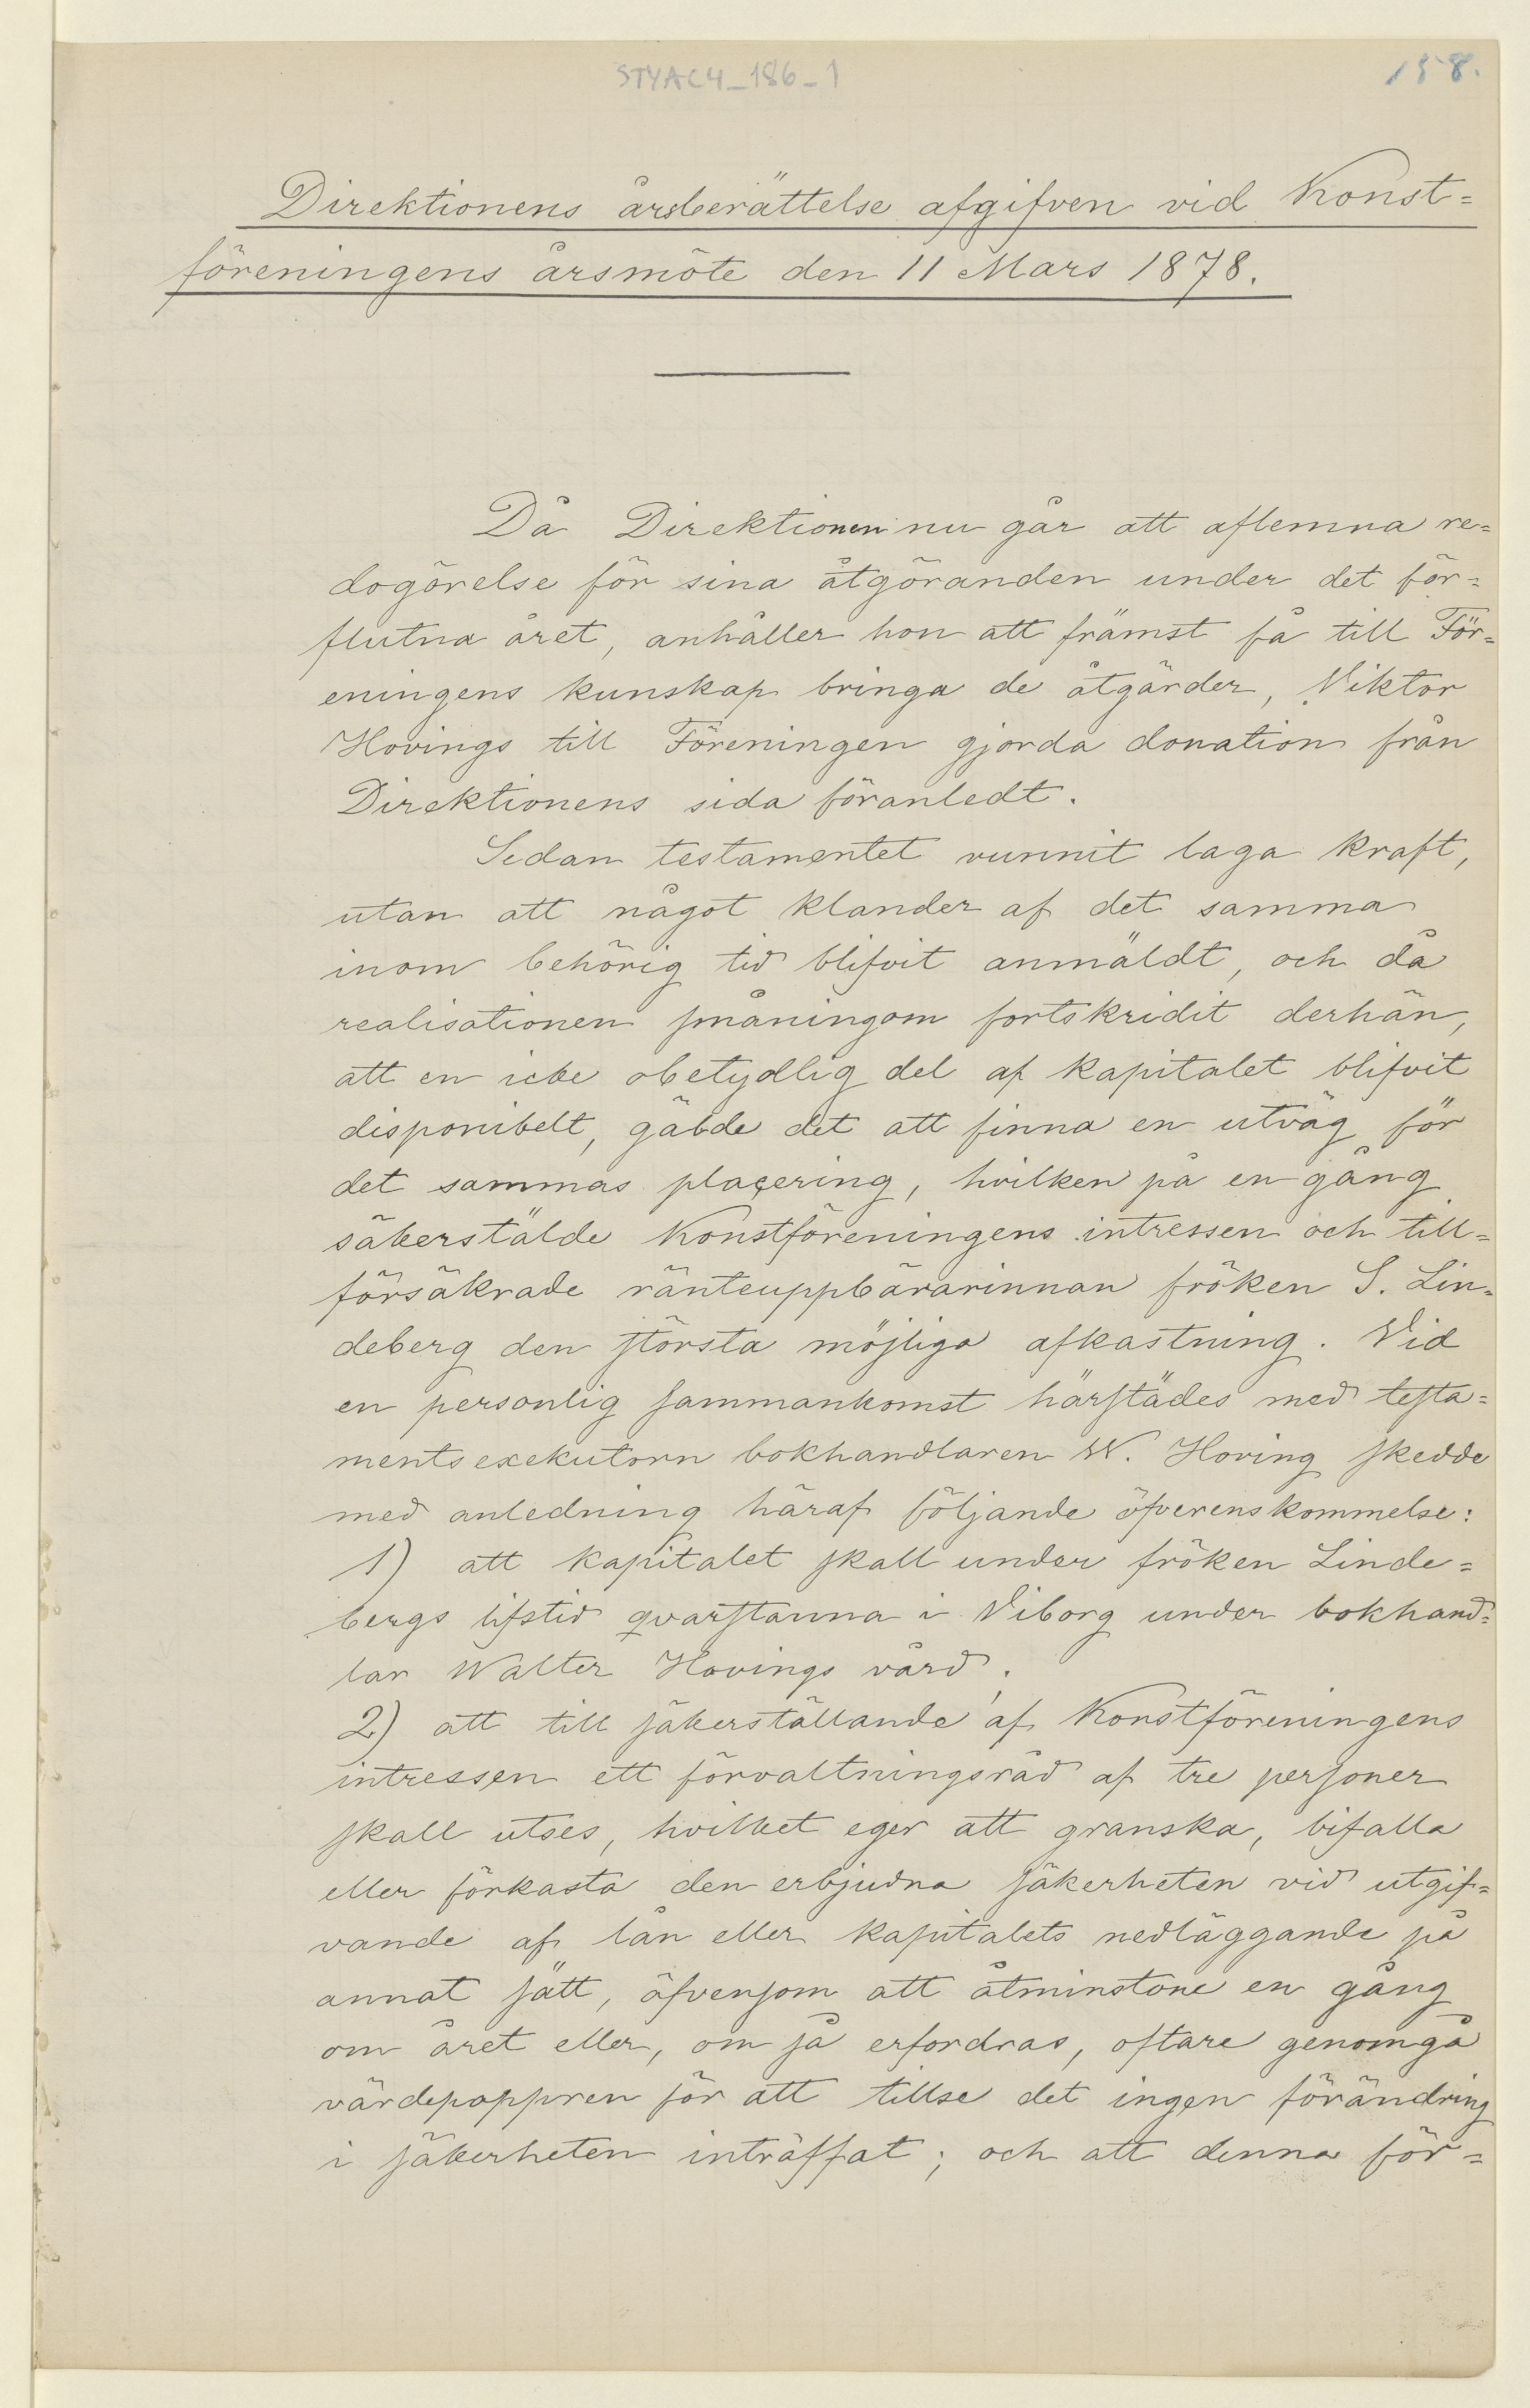 STYAC4_186_1
158.
Direktionens årsberättelse afgifven vid Konst=
föreningens årsmöte den 11 Mars 1878.
Då Direktionen nu går att aflemna re=
dogörelse för sina åtgöranden under det för=
flutna året, anhåller hon att främst få till För=
eningens kunskap bringa de åtgärder, Viktor
Hovings till Föreningen gjorda donation från
Direktionens sida föranledt.
Sedan testamentet vunnit laga kraft,
utan att något klander af det samma
inom behörig tid blifvit anmäldt, och då
realisationen småningom fortskridit derhän,
att en icke obetydlig del af kapitalet blifvit
disponibelt, gälde det att finna en utväg för
det sammas plaçering, hvilken på en gång
säkerstälde Konstföreningens intressen och till=
försäkrade ränteuppbärarinnan fröken S. Lin=
deberg den största möjliga afkastning. Vid
en personlig sammankomst härstädes med testa=
mentsexekutorn bokhandlaren W. Hoving skedde
med anledning häraf följande öfverenskommelse:
1) att kapitalet skall under fröken Linde=
bergs lifstid qvarstanna i Viborg under bokhand=
lar Walter Hovings vård;
2) att till säkerställande af Konstföreningens
intressen ett förvaltningsråd af tre personer
skall utses, hvilket eger att granska, bifalla
eller förkasta den erbjudna säkerheten vid utgif=
vande af lån eller kapitalets nedläggande på
annat sätt, äfvensom att åtminstone en gång
om året eller, om så erfordras, oftare genomgå
värdepappren för att tillse det ingen förändring
i säkerheten inträffat; och att denna för=